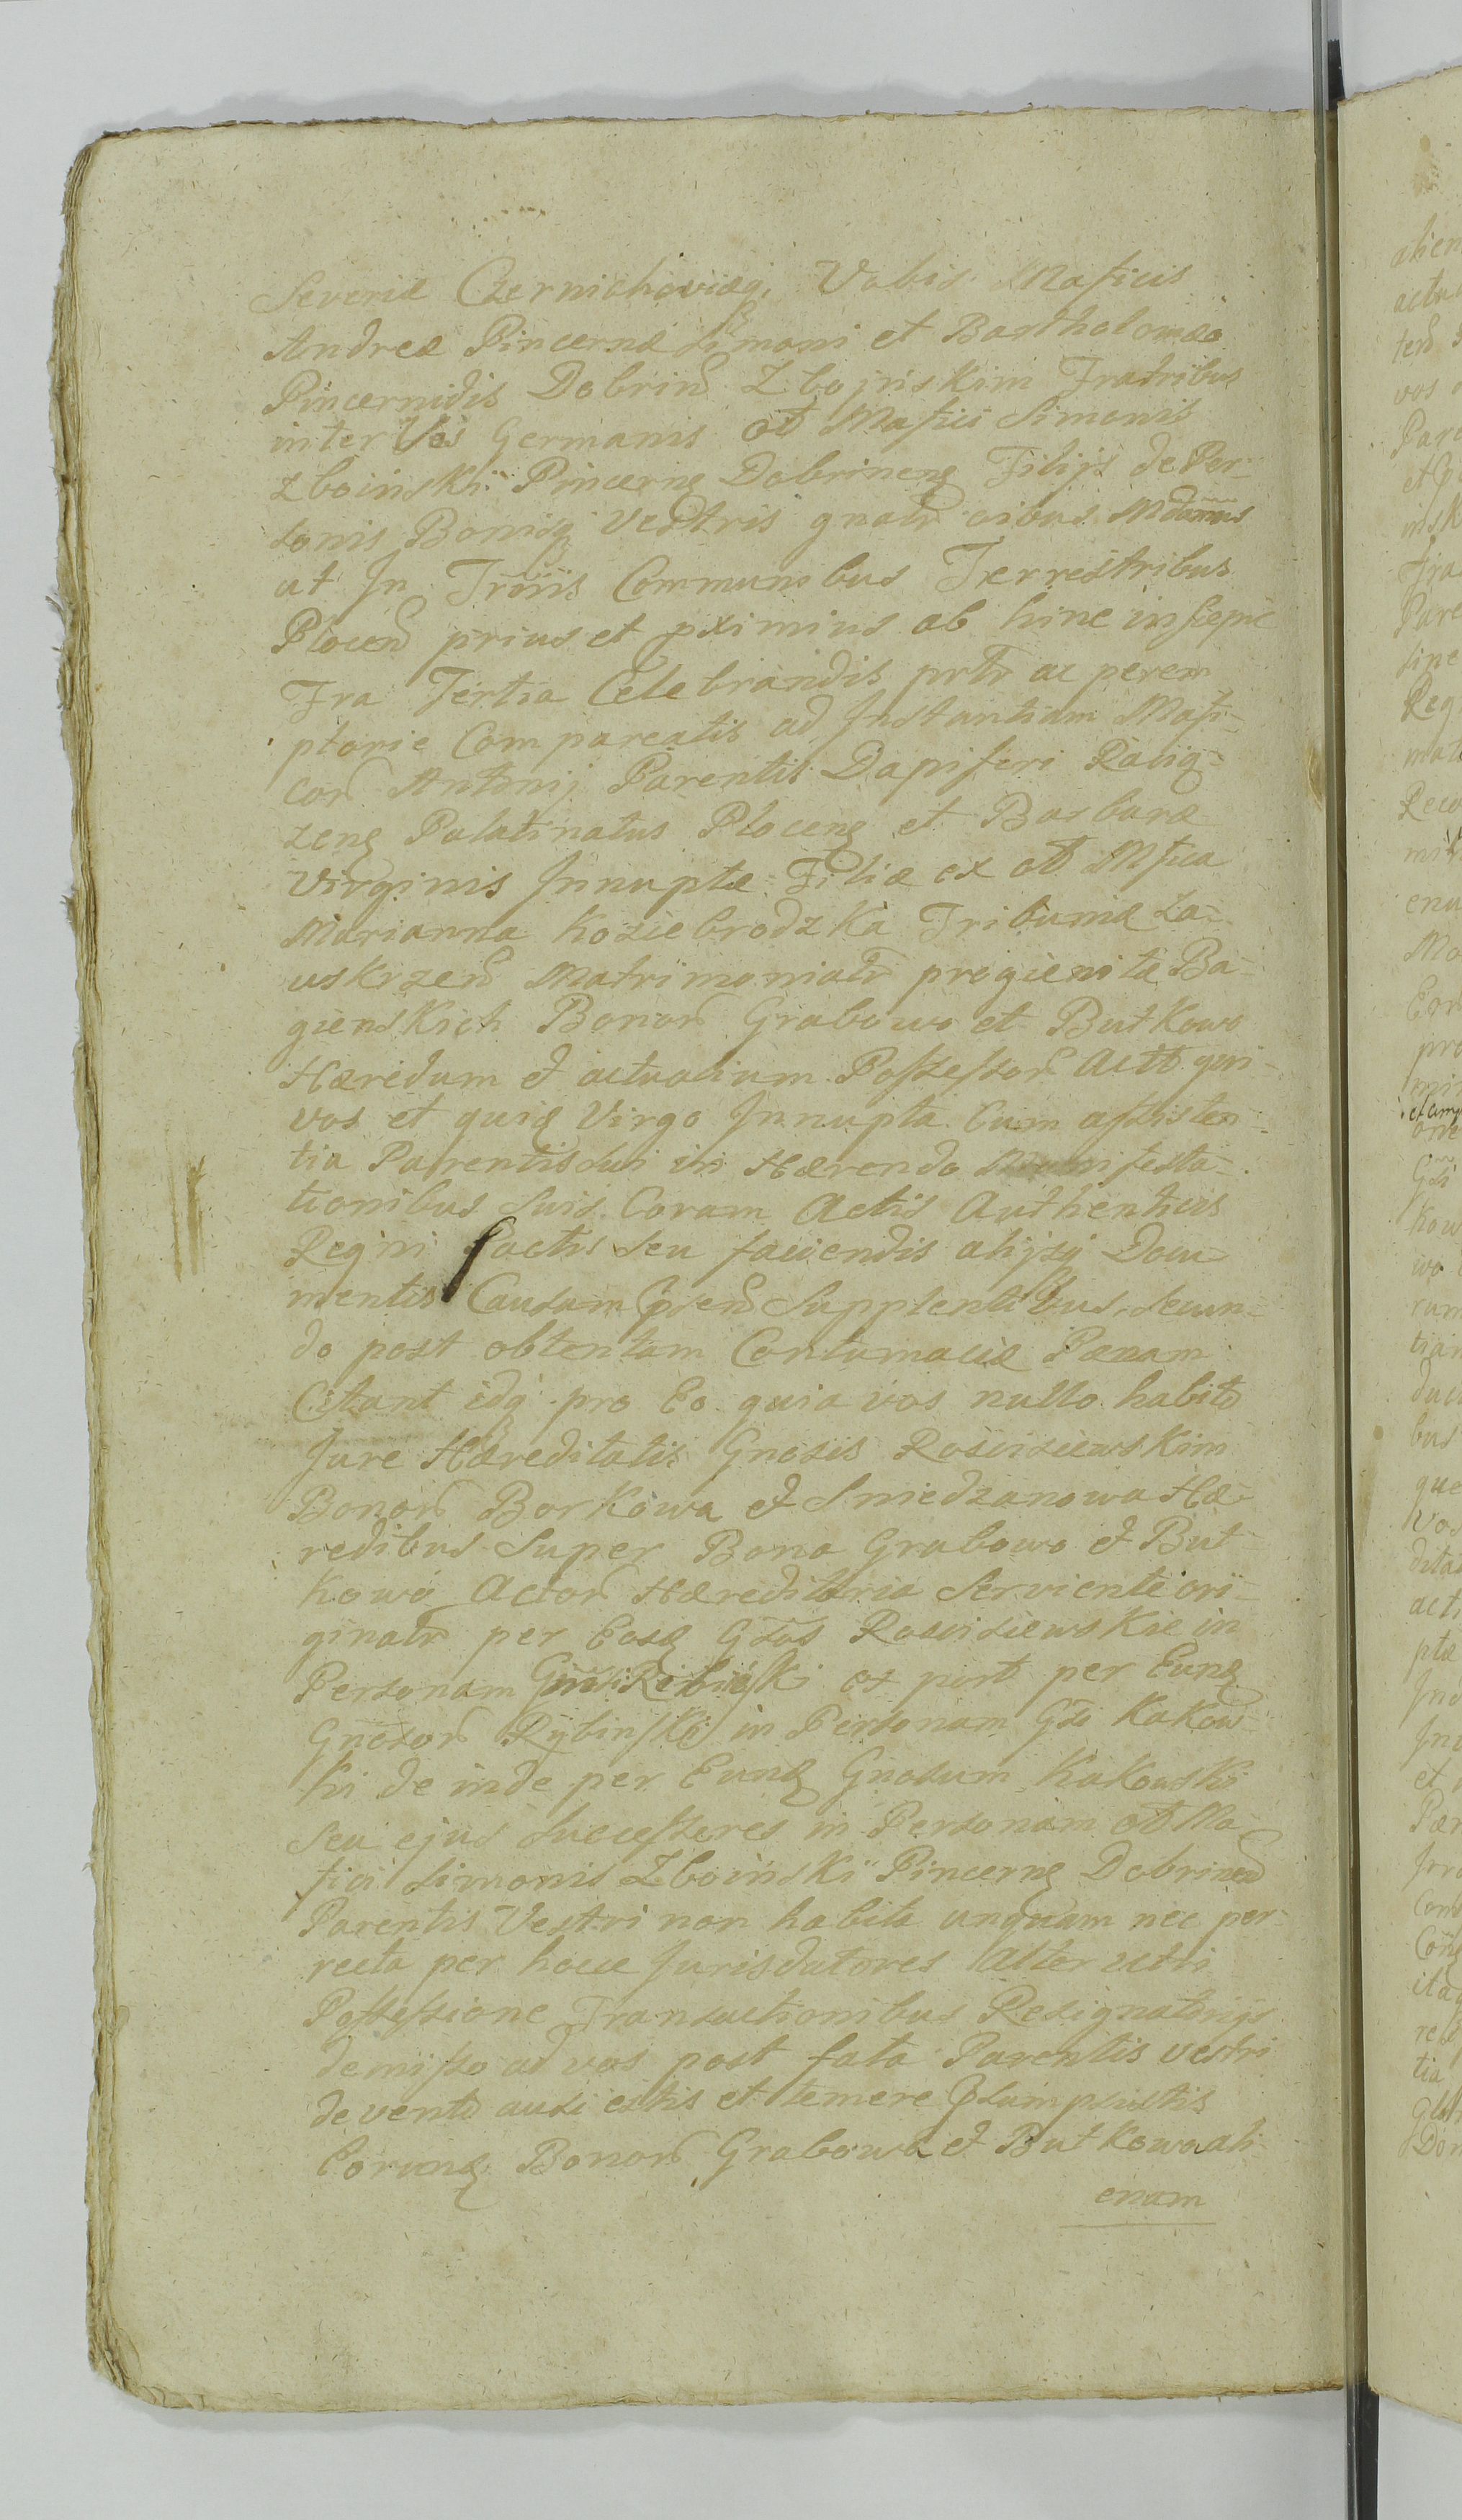 Severiæ Czernichoviæq; Vobis Maficis
Andreæ Pincernæ Simoni et Bartholomæo
Pincernidis Dobrin Zbojnskim Fratribus
inter Vos Germanis ot Mafici Simonis
Zboinski Pincernę Dobrinenę Filijs de Per-
sonis Bonisq; Vestris gnalr oibus Mdamus
ut In Trōiis Communibus Terrestribus
Plocen prius et pximius ab hinc in
Fra Tertia Celebrandis prtr ac perem
ptorie Compareatis ad Instantiam Mafi-
cor Antonij Parentis Dapiferi Raciąz-
zenę Palatinatus Plocenę et Barbaræ
Virginis Innuptæ Filiæ ex ot Mfica
Marianna Koziebrodzka Tribuniæ Za-
uskrzen Matrimonialr progienitæ Ba-
gienskich Bonor Grabowo et Butkowo
Hæredum et actualium Possessor Actt qui
vos et quiæ Virgo Innupta Cum assisten-
tia Parentis sui in Hærendo Manifesta-
tionibus Suis Coram Actis Authenticis
Regni factis seu faciendis alijsq; Docu-
mentis Causam Supplentibus, secun-
do post obtentam Contumaciæ Pænam
Citant idq; pro Eo quia vos nullo habito
Jure Hæreditatis Gnosis Rosciszewskim
Bonor Borkowa et Sniedzanowa Hæ-
redibus Super Bona Grabowo et But-
kowo Actor Hæreditaria Serviente ori-
ginalr per Eosę Gsos Rosciszewskie in
Personam Gnosi Ribinski et post per Eunę
Gnosor Rybinski in Personam Gsi Kakow-
ski de inde per Eunę Gnosum Kakowski
seu ejus Successores in Personam ot Ma
fici Simonis Zboinski Pincernę Dobrinen
Parentis Vestri non habita unquam nec per-
recta per hocce Jurisdatores alter utri
Possessione Transactionibus Resignatorijs
demisso ad vos post fata Parentis vestri
devento ausi estis et temere
Eorunę Bonor Grabowa et Butkowa ali-
enam